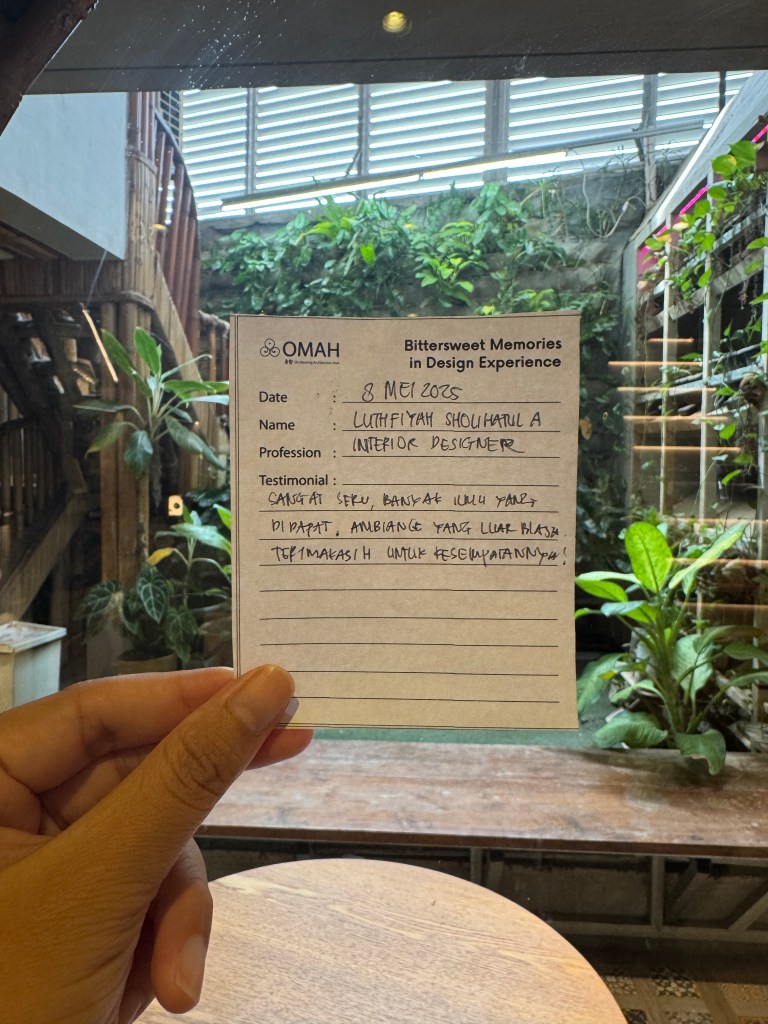 OMAH
Bittersweet Memories
in Design Experience
Date : 8 MEI 2025
Name : LUTHFIYAH SHOLIHATUL A
Profession : INTERIOR DESIGNER
Testimonial :
SANGAT SERU, BANYAK ILMU YANG
DIDAPAT. AMBIANCE YANG LUAR BIASA.
TERIMAKASIH UNTUK KESEMPATANNYA!